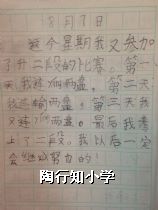 8月7日
这个星期我又参加
了升二段的比赛。第一
天我连输两盘。第二天
我连输两盘。第三天我
又连赢两盘。最后我考
上了二段。我以后一定
会继续努力的！
陶行知小学